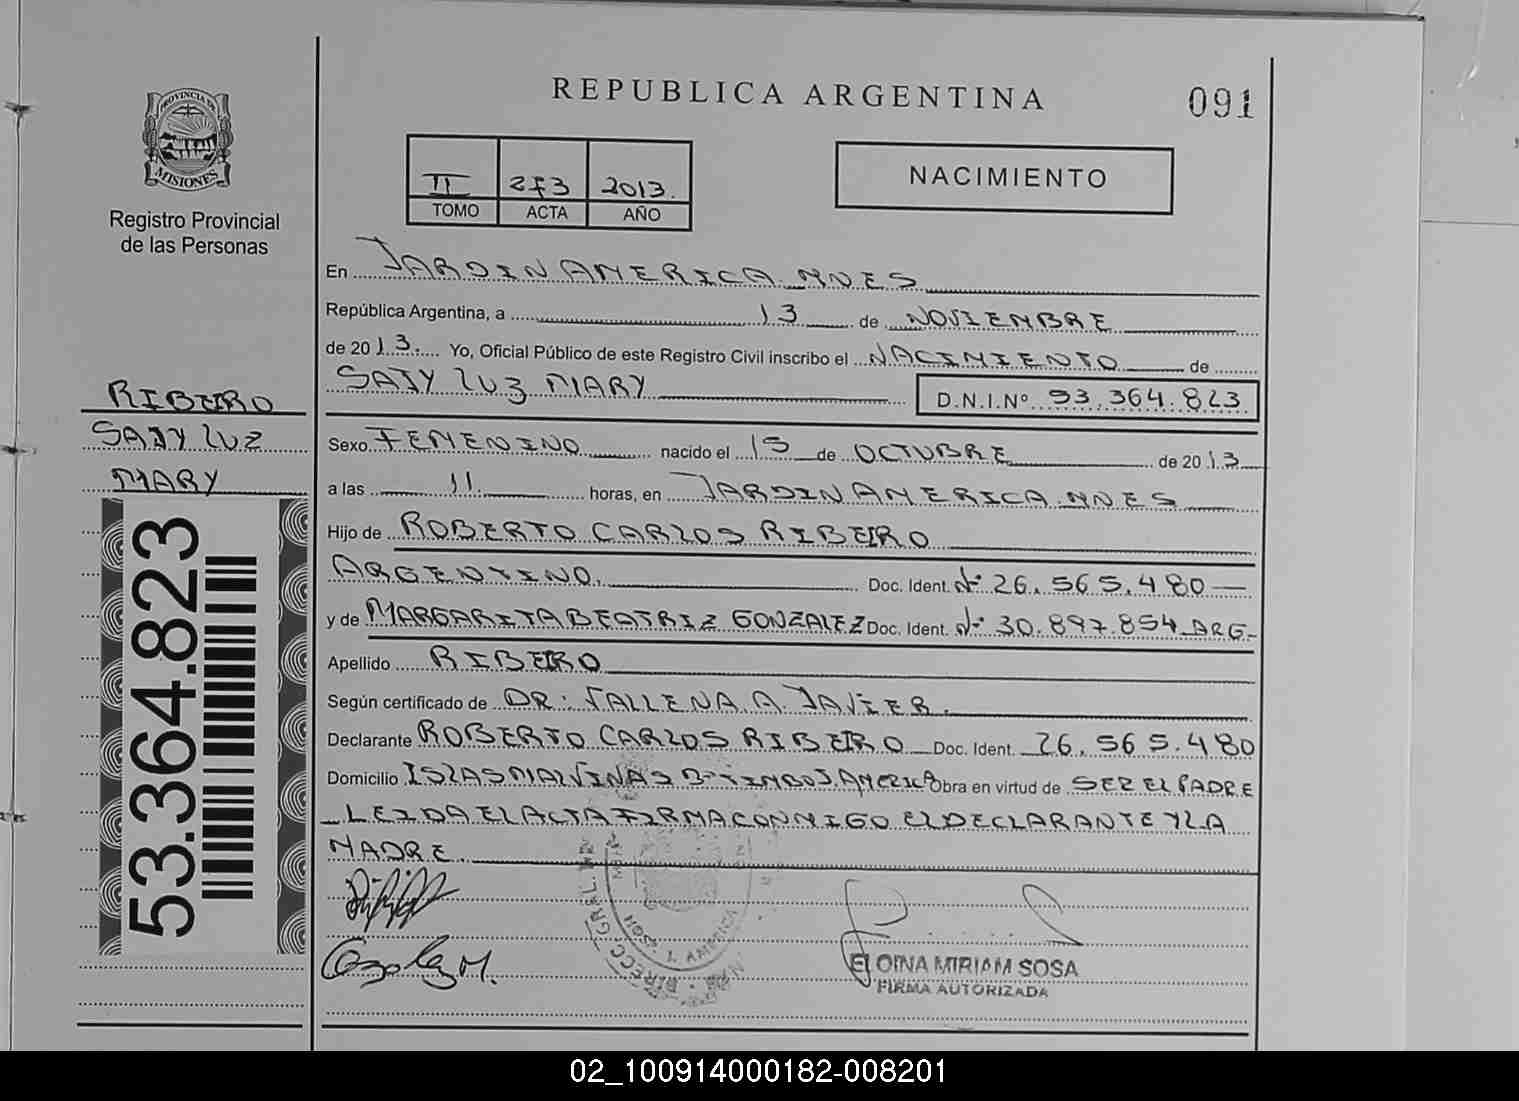 REPUBLICA ARGENTINA
091
PROVINCIA DE
MISIONES
Registro Provincial
de las Personas
II 273 2013.
TOMO ACTA AÑO
NACIMIENTO
En JARDIN AMERICA. MNES
República Argentina, a 13 de NOVIEMBRE
de 2013. Yo, Oficial Público de este Registro Civil inscribo el NACIMIENTO de
SAJY LUZ MARY D.N.I.Nº 53.364.823
RIBEIRO
SAJY LUZ
MARY
Sexo FEMENINO nacido el 15 de OCTUBRE de 2013
a las 11 horas, en JARDIN AMERICA. MNES
Hijo de ROBERTO CARLOS RIBEIRO
ARGENTINO. Doc. Ident. Nº 26.565.480
y de MARGARITA BEATRIZ GONZALEZ Doc. Ident. Nº 30.897.854 ARG-
Apellido RIBEIRO
Según certificado de DR: VALLENA A. JAVIER.
Declarante ROBERTO CARLOS RIBEIRO Doc. Ident. 26.565.480
Domicilio ISLAS MALVINAS Bº TIMBO J. AMERICA Obra en virtud de SER EL PADRE
LEIDA EL ACTA FIRMA CONMIGO EL DECLARANTE Y LA
MADRE.
53.364.823
DIRECC. GRAL.
J. AMERICA
Gonzalez M.
ELOINA MIRIAM SOSA
FIRMA AUTORIZADA
02_100914000182-008201